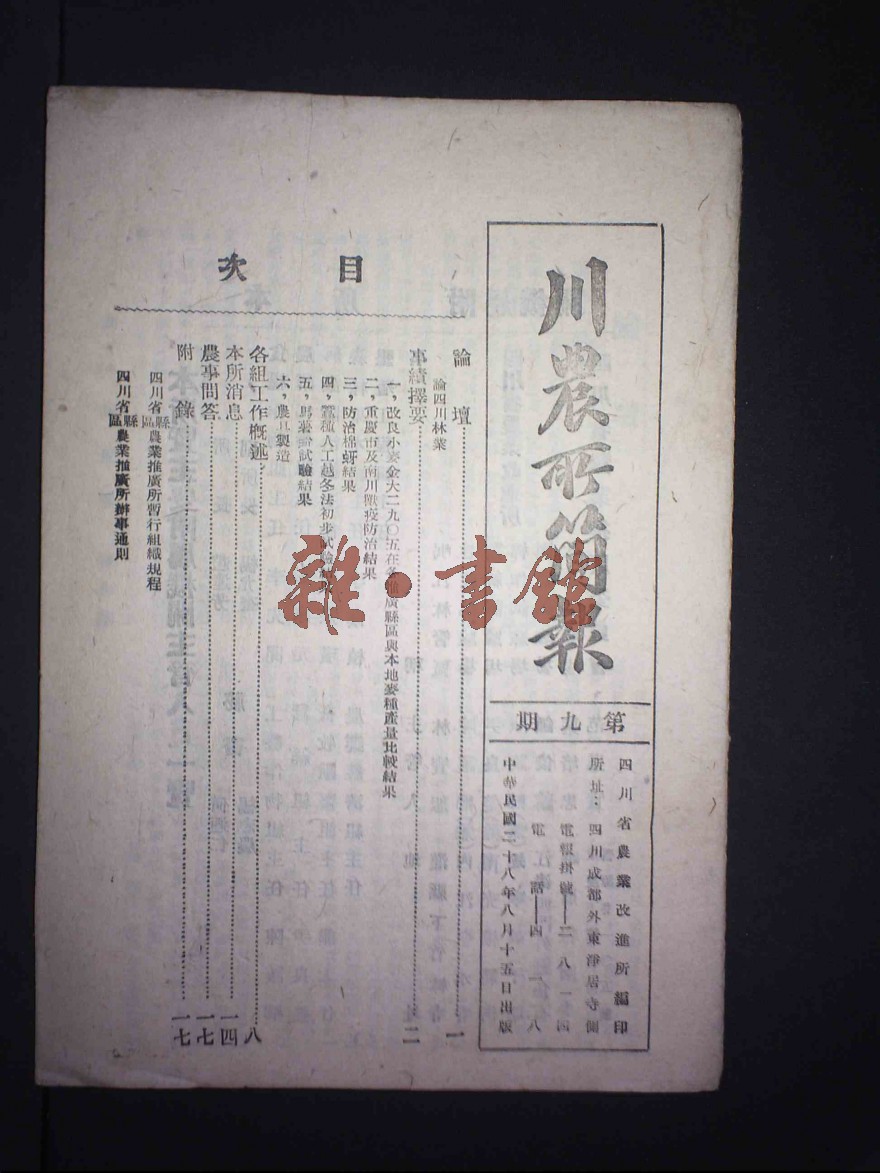 川農所簡報
第九期
四川省農業改進所編印
所址：四川成都外東淨居寺側
電報掛號——二八一四
電話——四一八
中華民國二十八年八月十五日出版
目次
論壇 一
論四川林業
事績擇要 二
一，改良小麥金大二九〇五在各推廣縣區與本地麥種產量比較結果
二，重慶市及南川獸疫防治結果
三，防治棉蚜結果
四，蠶種人工越冬法初步試驗
五，試驗結果
六，農具製造
各組工作概述 八
本所消息 一四
農事問答 一七
附錄 一七
四川省縣區農業推廣所暫行組織規程
四川省縣區農業推廣所辦事通則
雜·書館